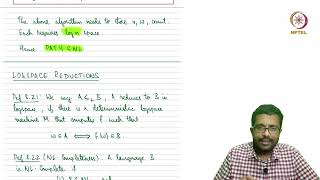 The above algorithm needs to store u, w, count.
Each requires log n space.
Hence PATH ∈ NL.
LOGSPACE REDUCTIONS
Def 8.21: We say A ≤L B, A reduces to B in
logspace, if there is a deterministic logspace
machine M that computes f such that
w ∈ A ⟺ f(w) ∈ B.
Def 8.22 (NL-Completeness): A language B
is NL-Complete if
NPTEL